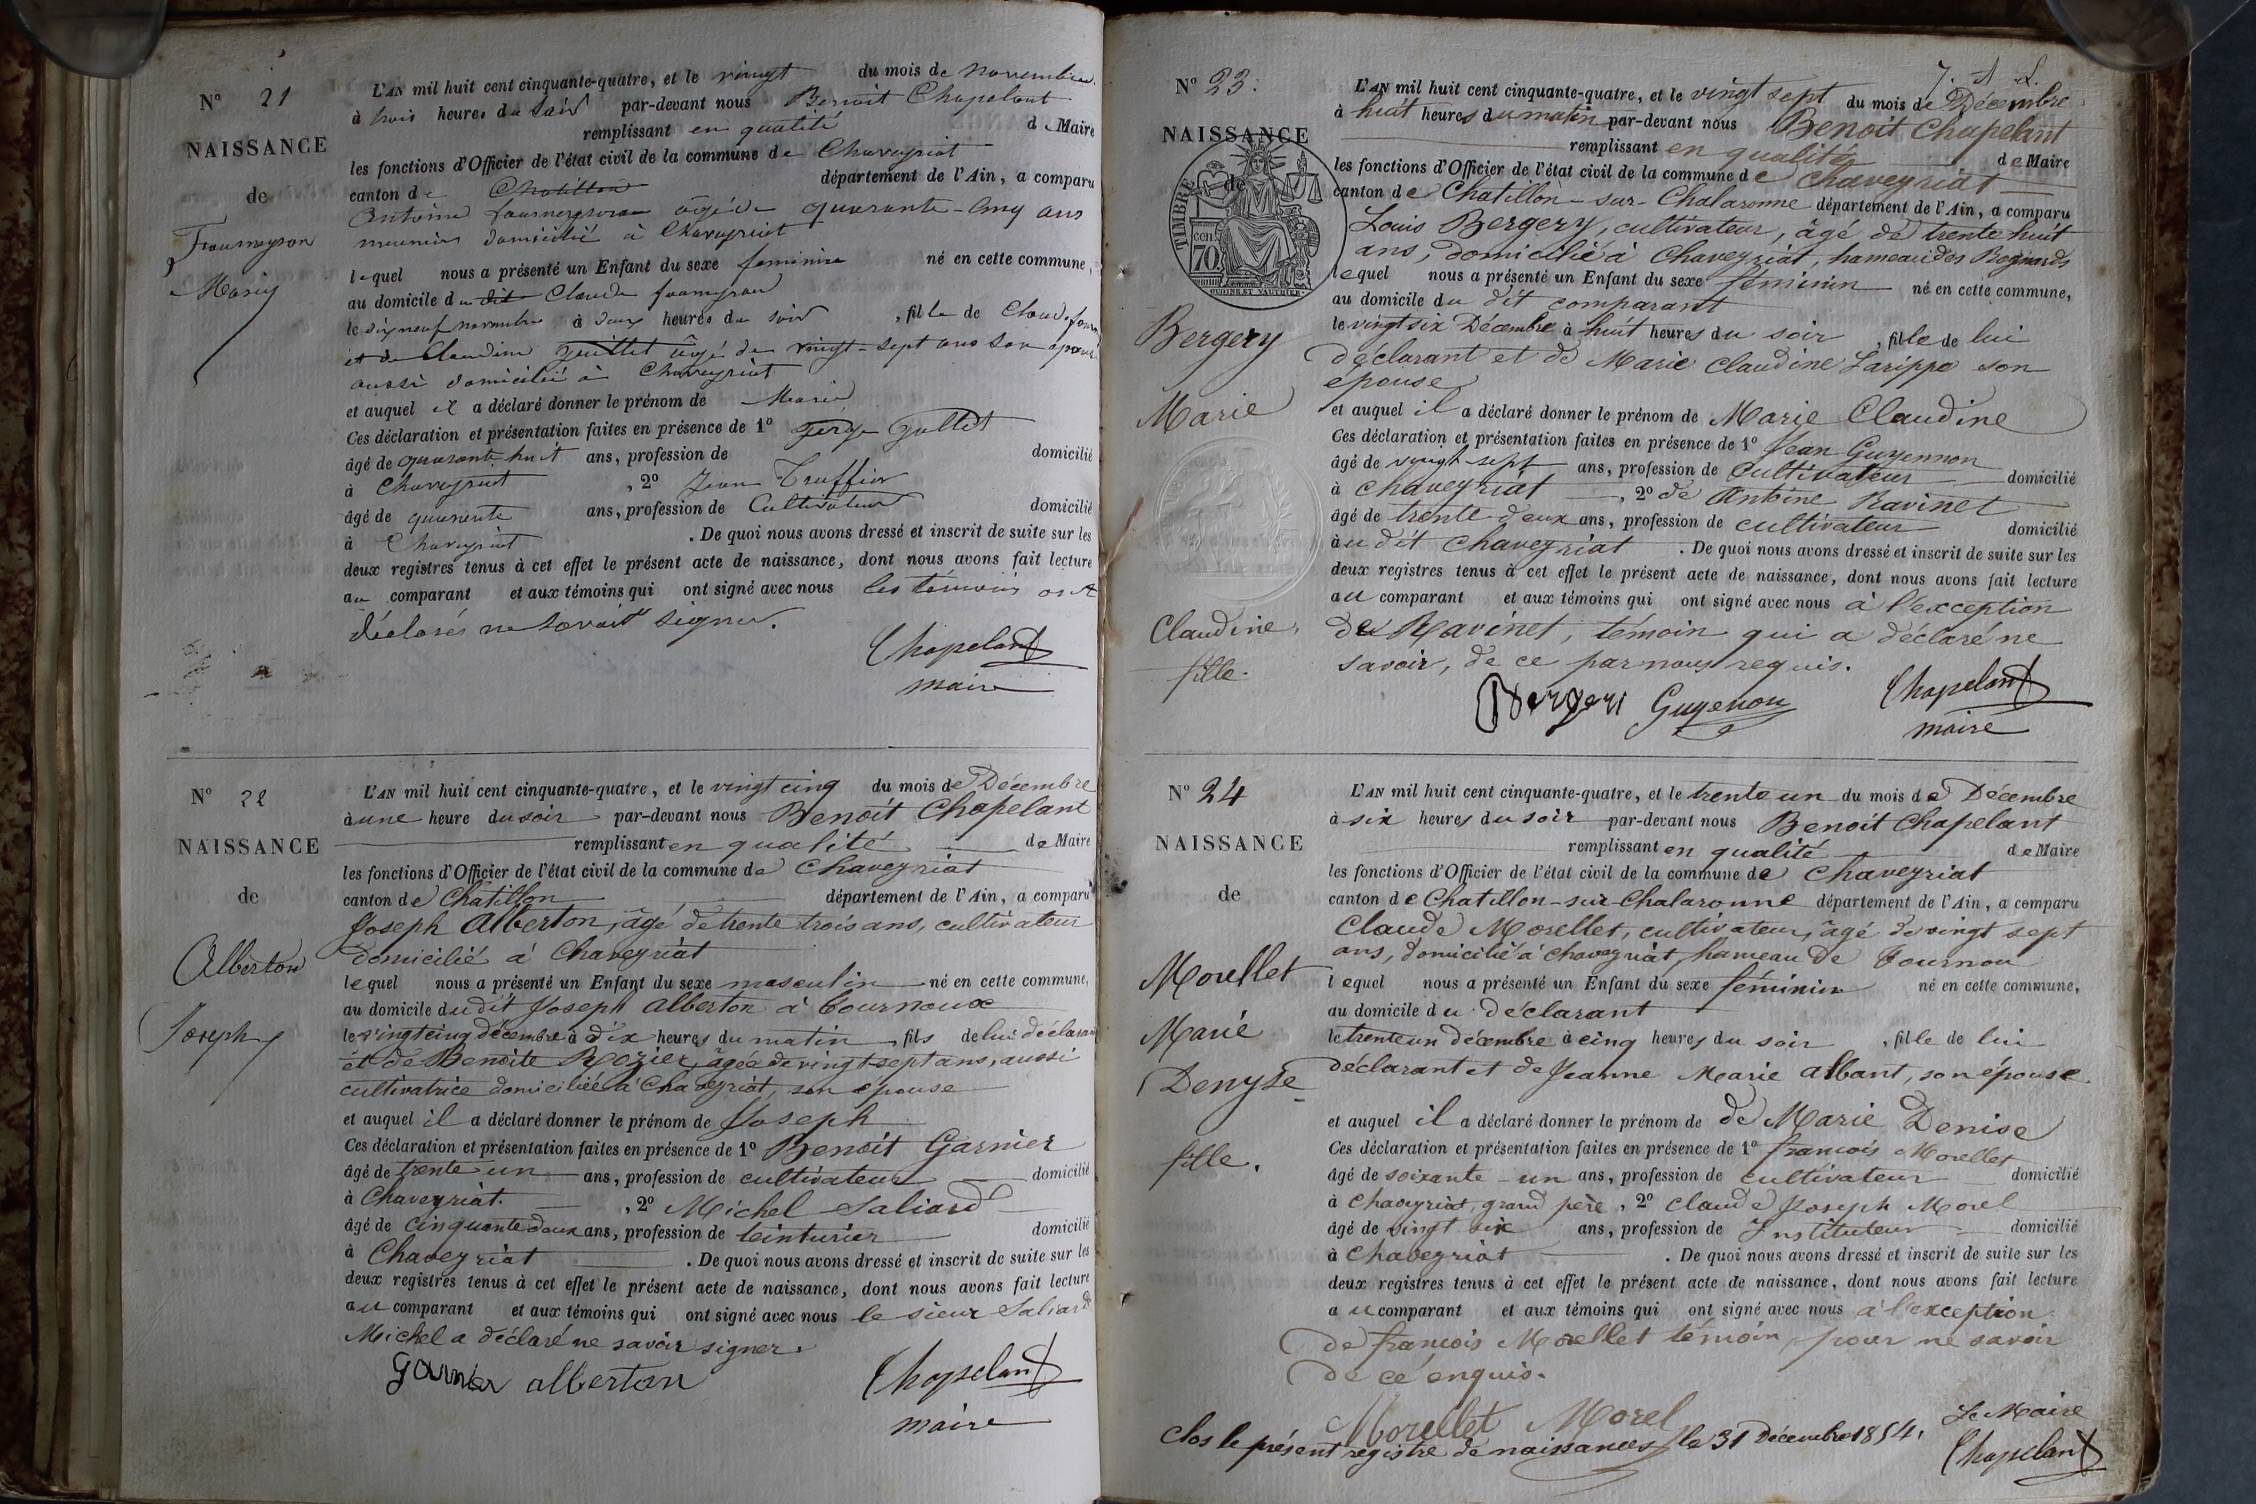 N° 21
NAISSANCE
de
Fourneyron
Marie
L'AN mil huit cent cinquante-quatre, et le vingt du mois de novembre
à trois heures du soir par-devant nous Benoit Chapelant
remplissant en qualité de Maire
les fonctions d'Officier de l'état civil de la commune de Chaveyriat
canton de Chatillon département de l'Ain, a comparu
Antoine âgé de quarante-cinq ans
meunier domicilié à Chaveyriat
lequel nous a présenté un Enfant du sexe feminin né en cette commune,
au domicile du dit Claude
le dix neuf novembre à deux heures du soir, fille de Claude
et de Claudine Guillet âgé de vingt-sept ans son épouse
aussi domicilié à Chaveyriat
et auquel il a déclaré donner le prénom de Marie
Ces déclaration et présentation faites en présence de 1°
âgé de quarante huit ans, profession de domicilié
à Chaveyriat, 2° Jean Truffier
âgé de quarante ans, profession de Cultivateur domicilié
à Chaveyriat. De quoi nous avons dressé et inscrit de suite sur les
deux registres tenus à cet effet le présent acte de naissance, dont nous avons fait lecture
au comparant et aux témoins qui ont signé avec nous les témoins ont
déclarés ne savoir signer.
Chapelant
maire
N° 22
NAISSANCE
de
Alberton
Joseph
L'AN mil huit cent cinquante-quatre, et le vingt cinq du mois de Décembre
à une heure du soir par-devant nous Benoit Chapelant
remplissant en qualité de Maire
les fonctions d'Officier de l'état civil de la commune de Chaveyriat
canton de Chatillon département de l'Ain, a comparu
Joseph Alberton, âgé de trente trois ans, cultivateur
domicilié à Chaveyriat
lequel nous a présenté un Enfant du sexe masculin né en cette commune,
au domicile du dit Joseph Alberton à Tournoux
le vingt cinq décembre à dix heures du matin, fils de lui déclarant
et de Benoite Rozier, âgée de vingt-sept ans, aussi
cultivatrice domiciliée à Chaveyriat, son épouse
et auquel il a déclaré donner le prénom de Joseph
Ces déclaration et présentation faites en présence de 1° Benoit Garnier
âgé de trente un ans, profession de cultivateur domicilié
à Chaveyriat. , 2° Michel Saliard
âgé de cinquante deux ans, profession de teinturier domicilié
à Chaveyriat. De quoi nous avons dressé et inscrit de suite sur les
deux registres tenus à cet effet le présent acte de naissance, dont nous avons fait lecture
au comparant et aux témoins qui ont signé avec nous le sieur Saliard
Michel a déclaré ne savoir signer.
Garnier alberton
Chapelant
maire
N° 23.
NAISSANCE
de
TIMBRE
cen. 70
Bergery
Marie
Claudine,
fille.
L'AN mil huit cent cinquante-quatre, et le vingt sept du mois de Décembre
à huit heures du matin par-devant nous Benoit Chapelant
remplissant en qualité de Maire
les fonctions d'Officier de l'état civil de la commune de Chaveyriat
canton de Chatillon-sur-Chalaronne département de l'Ain, a comparu
Louis Bergery, cultivateur, âgé de trente huit
ans, domicilié à Chaveyriat, hameau des Rognards
lequel nous a présenté un Enfant du sexe féminin né en cette commune,
au domicile du dit comparant
le vingt six Décembre à huit heures du soir, fille de lui
déclarant et de Marie Claudine Larippe son
épouse
et auquel il a déclaré donner le prénom de Marie Claudine
Ces déclaration et présentation faites en présence de 1° Jean Guyennon
âgé de vingt sept ans, profession de cultivateur domicilié
à Chaveyriat, 2° de Antoine Ravinet
âgé de trente deux ans, profession de cultivateur domicilié
au dit Chaveyriat. De quoi nous avons dressé et inscrit de suite sur les
deux registres tenus à cet effet le présent acte de naissance, dont nous avons fait lecture
au comparant et aux témoins qui ont signé avec nous à l'exception
de Ravinet, témoin qui a déclaré ne
savoir, de ce par nous requis.
Bergeri Guyenon
Chapelant
maire
N° 24
NAISSANCE
de
Morellet
Marie
Denyse
fille.
L'AN mil huit cent cinquante-quatre, et le trente un du mois de Décembre
à six heures du soir par-devant nous Benoit Chapelant
remplissant en qualité de Maire
les fonctions d'Officier de l'état civil de la commune de Chaveyriat
canton de Chatillon-sur-Chalaronne département de l'Ain, a comparu
Claude Morellet, cultivateur, âgé de vingt sept
ans, domicilié à Chaveyriat, hameau de Tournou
lequel nous a présenté un Enfant du sexe féminin né en cette commune,
au domicile du déclarant
le trente un décembre à cinq heures du soir, fille de lui
déclarant et de Jeanne Marie Albant, son épouse.
et auquel il a déclaré donner le prénom de de Marie Denise
Ces déclaration et présentation faites en présence de 1° françois Morellet
âgé de soixante-un ans, profession de cultivateur domicilié
à Chaveyriat, grand père, 2° Claude Joseph Morel
âgé de vingt six ans, profession de Instituteur domicilié
à Chaveyriat. De quoi nous avons dressé et inscrit de suite sur les
deux registres tenus à cet effet le présent acte de naissance, dont nous avons fait lecture
au comparant et aux témoins qui ont signé avec nous à l'exception
de françois Morellet témoin, pour ne savoir
de ce enquis.
Morellet Morel
Le Maire
Clos le présent registre de naissances, le 31 Décembre 1854.
Chapelant